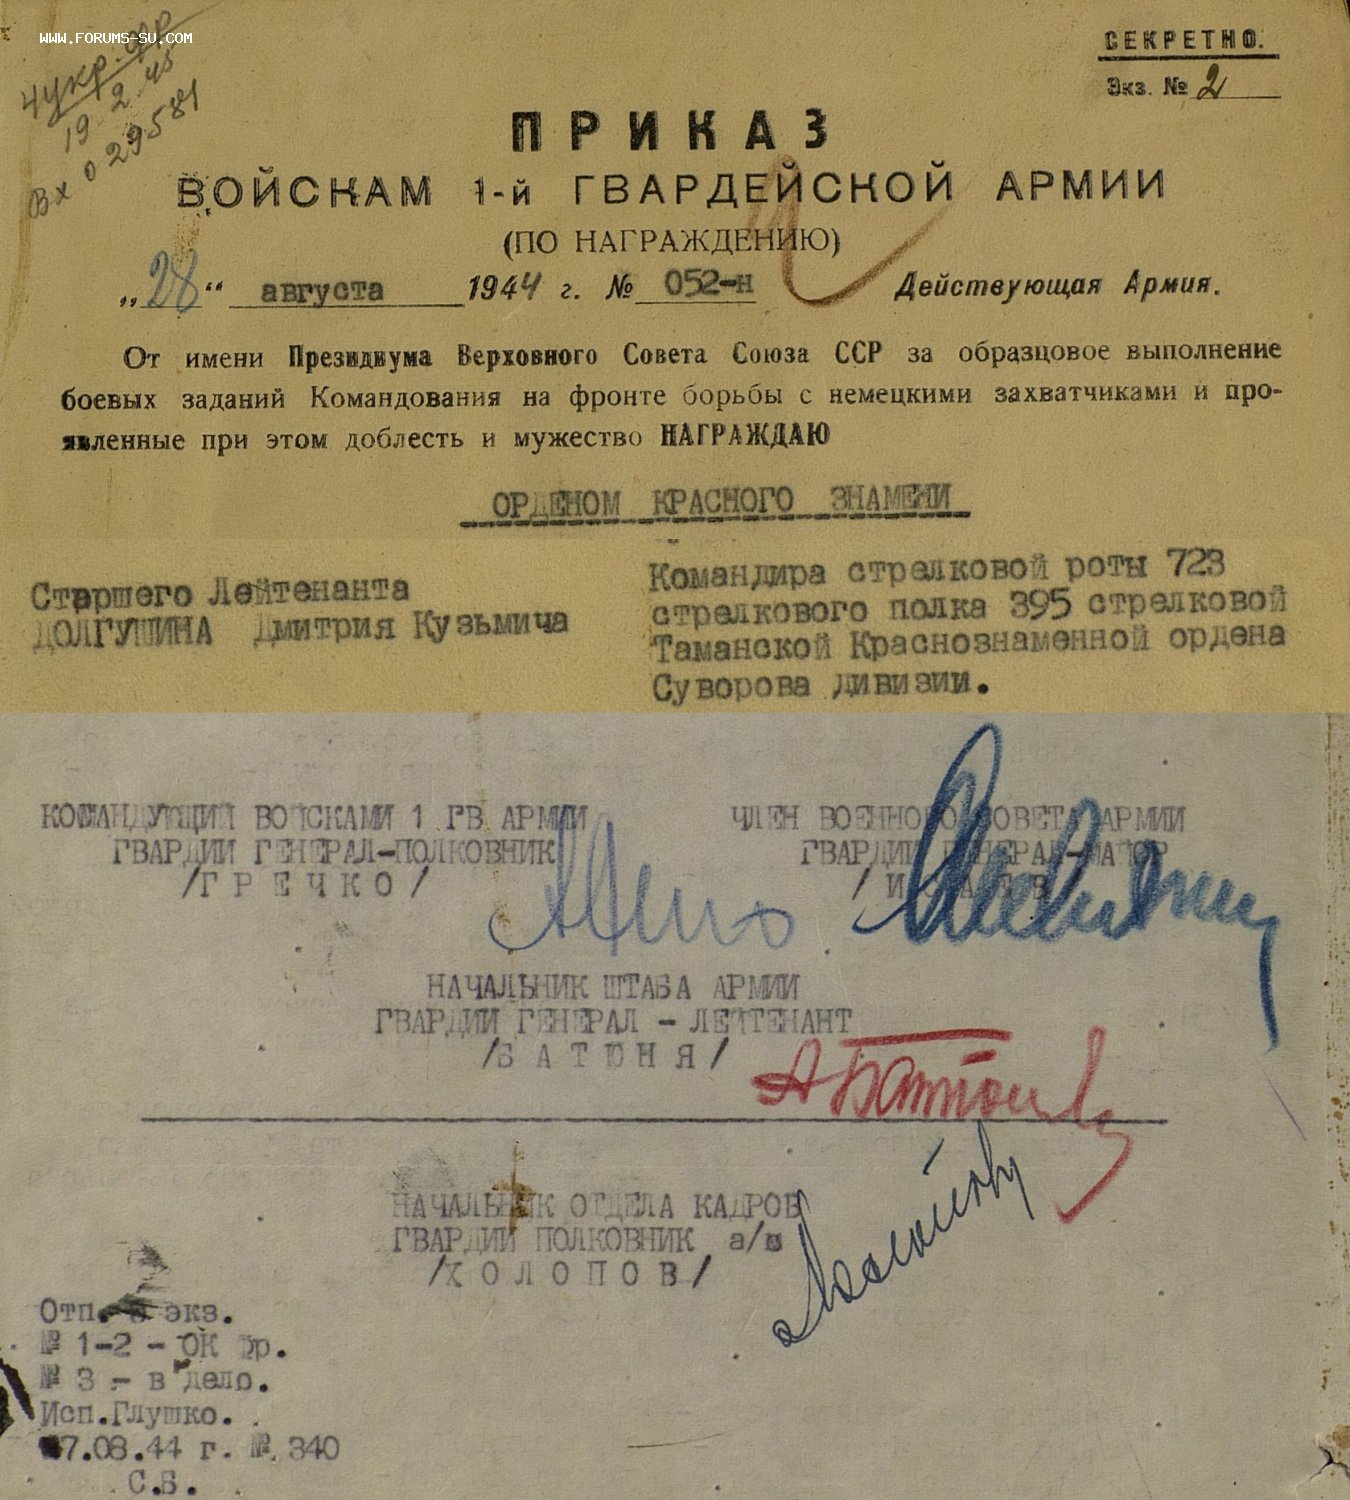 WWW.FORUMS-SU.COM
4 укр. фр
19.2.45
Вх 029581
СЕКРЕТНО.
Экз. № 2
ПРИКАЗ
ВОЙСКАМ 1-й ГВАРДЕЙСКОЙ АРМИИ
(ПО НАГРАЖДЕНИЮ)
„28“ августа 1944 г. № 052-н Действующая Армия.
От имени Президиума Верховного Совета Союза ССР за образцовое выполнение
боевых заданий Командования на фронте борьбы с немецкими захватчиками и про-
явленные при этом доблесть и мужество НАГРАЖДАЮ
ОРДЕНОМ КРАСНОГО ЗНАМЕНИ
Старшего Лейтенанта
ДОЛГУШИНА Дмитрия Кузьмича
Командира стрелковой роты 723
стрелкового полка 395 стрелковой
Таманской Краснознаменной ордена
Суворова дивизии.
КОМАНДУЮЩИЙ ВОЙСКАМИ 1 ГВ АРМИИ
ГВАРДИИ ГЕНЕРАЛ-ПОЛКОВНИК
/ГРЕЧКО/
ЧЛЕН ВОЕННОГО СОВЕТА АРМИИ
ГВАРДИИ ГЕНЕРАЛ-МАЙОР
НАЧАЛЬНИК ШТАБА АРМИИ
ГВАРДИИ ГЕНЕРАЛ - ЛЕЙТЕНАНТ
/БАТЮНЯ/
НАЧАЛЬНИК ОТДЕЛА КАДРОВ
ГВАРДИИ ПОЛКОВНИК а/с
/ХОЛОПОВ/
Отп. экз.
№ 1-2 - ОК фр.
№ 3 - в дело.
Исп.Глушко.
7.08.44 г. № 340
С.Б.